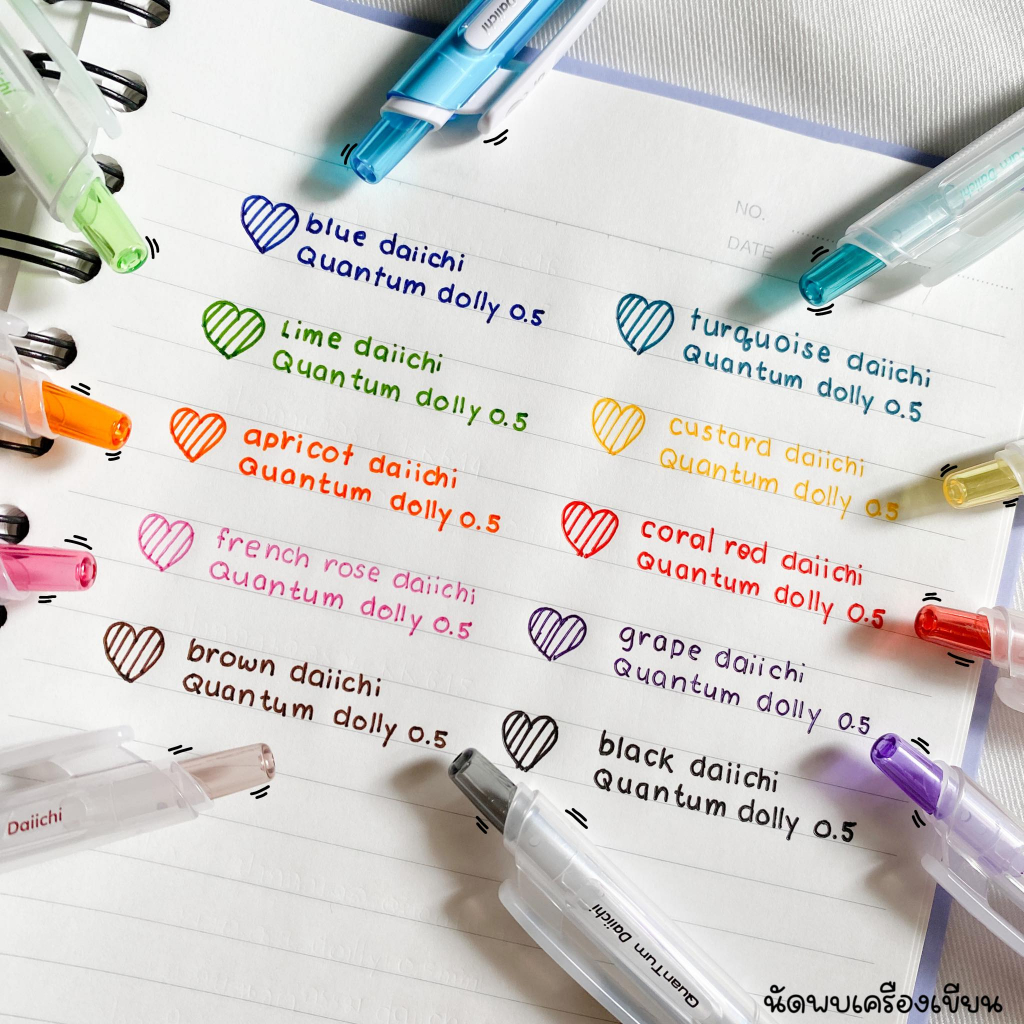 Daiichi
NO.
DATE
blue daiichi
Quantum dolly 0.5
turquoise daiichi
Quantum dolly 0.5
Lime daiichi
Quantum dolly 0.5
custard daiichi
Quantum dolly 0.5
apricot daiichi
Quantum dolly 0.5
coral red daiichi
Quantum dolly 0.5
french rose daiichi
Quantum dolly 0.5
grape daiichi
Quantum dolly 0.5
brown daiichi
Quantum dolly 0.5
black daiichi
Quantum dolly 0.5
Daiichi
QuanTum Daiichi
นัดพบเครื่องเขียน